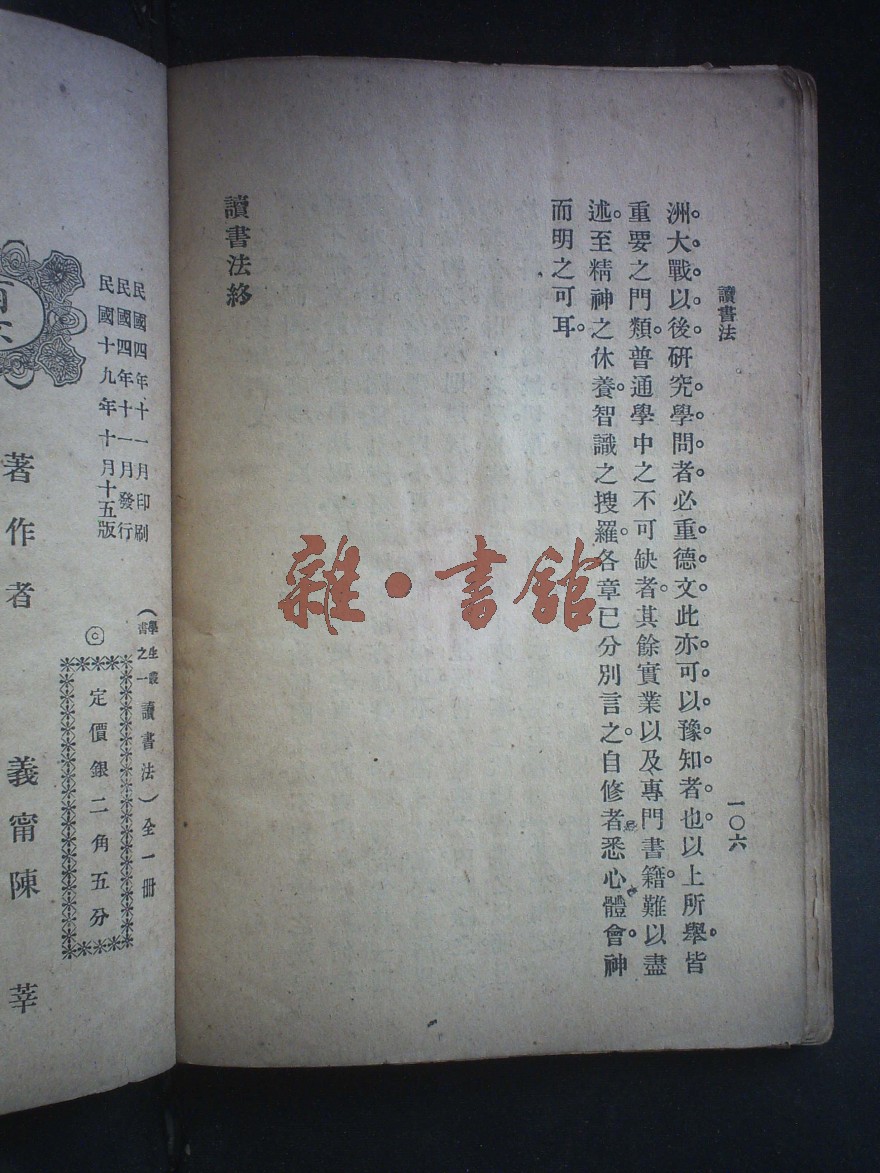 讀書法
一〇六
洲。大。戰。以。後。研究。學。問。者。必重。德。文。此。亦。可。以。豫。知。者。也。以上所舉。皆
重要之門類。普通學中之不可缺者。其餘實業以及專門書籍。難以盡
述。至精神之休養。智識之搜羅。各章已分別言之。自修者悉心體會。神
而明之可耳。
讀書法終
民國四年十一月印刷
民國四年十一月發行
民國十九年十月十五版
(學生叢書之一 讀書法)全一冊
©
定價銀二角五分
著作者 義甯陳 莘
雜·書館